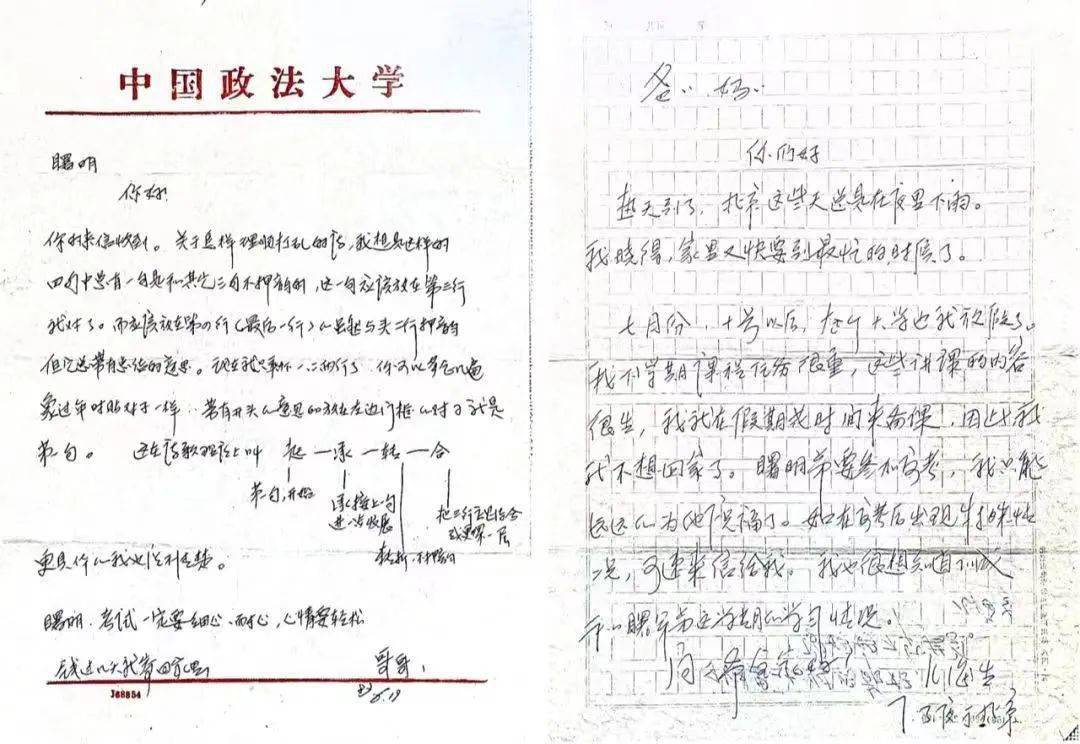 中国政法大学
曙明
你好
你的来信收到。关于怎样理顺打乱的诗,我想是这样的
四句中总有一句是和其它三句不押韵的,这一句应该放在第三行
就对了。而应该放在第四行(最后一行)的虽然与头二行押韵
但它总带有总结的意思。现在就只剩下一、二两行了,你可以
象过年时贴对子一样,带有开头的意思的放在左边门框的对子就是
第一句。 这在诗歌理论上叫 起—承—转—合
第一句,开始
承接上句
进一步发展
转折
把三行主题结合
或更深一层
更具体的我也没利
曙明,考试一定要细心、耐心,心情要轻松
哥哥
6.17
J68854
爸、妈:
你们好
热天到了,北京这些天总是在夜里下雨。
我晓得,家里又快要到最忙的时候了。
七月份,十号以后,左右大学也就放假了。
我下学期课程任务很重,这些讲课的内容
很生,我就在假期找时间来备课,因此我
就不想回家了。曙明弟要参加高考,我只能
远远的为他祝福了。如在高考后出现特殊情
况,可速来信给我。我也很想知道
曙军弟这学期的学习情况。
儿海生
于北京